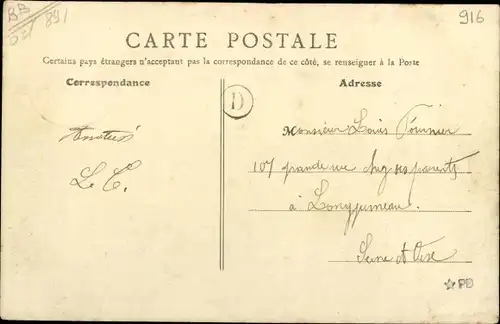 BB
891
916
CARTE POSTALE
Certains pays étrangers n'acceptant pas la correspondance de ce côté, se renseigner à la Poste
Correspondance
Adresse
D
Amitiés
L. C.
Monsieur Louis Fournier
107 grande rue chez ses parents
à Longjumeau.
Seine et Oise
PD